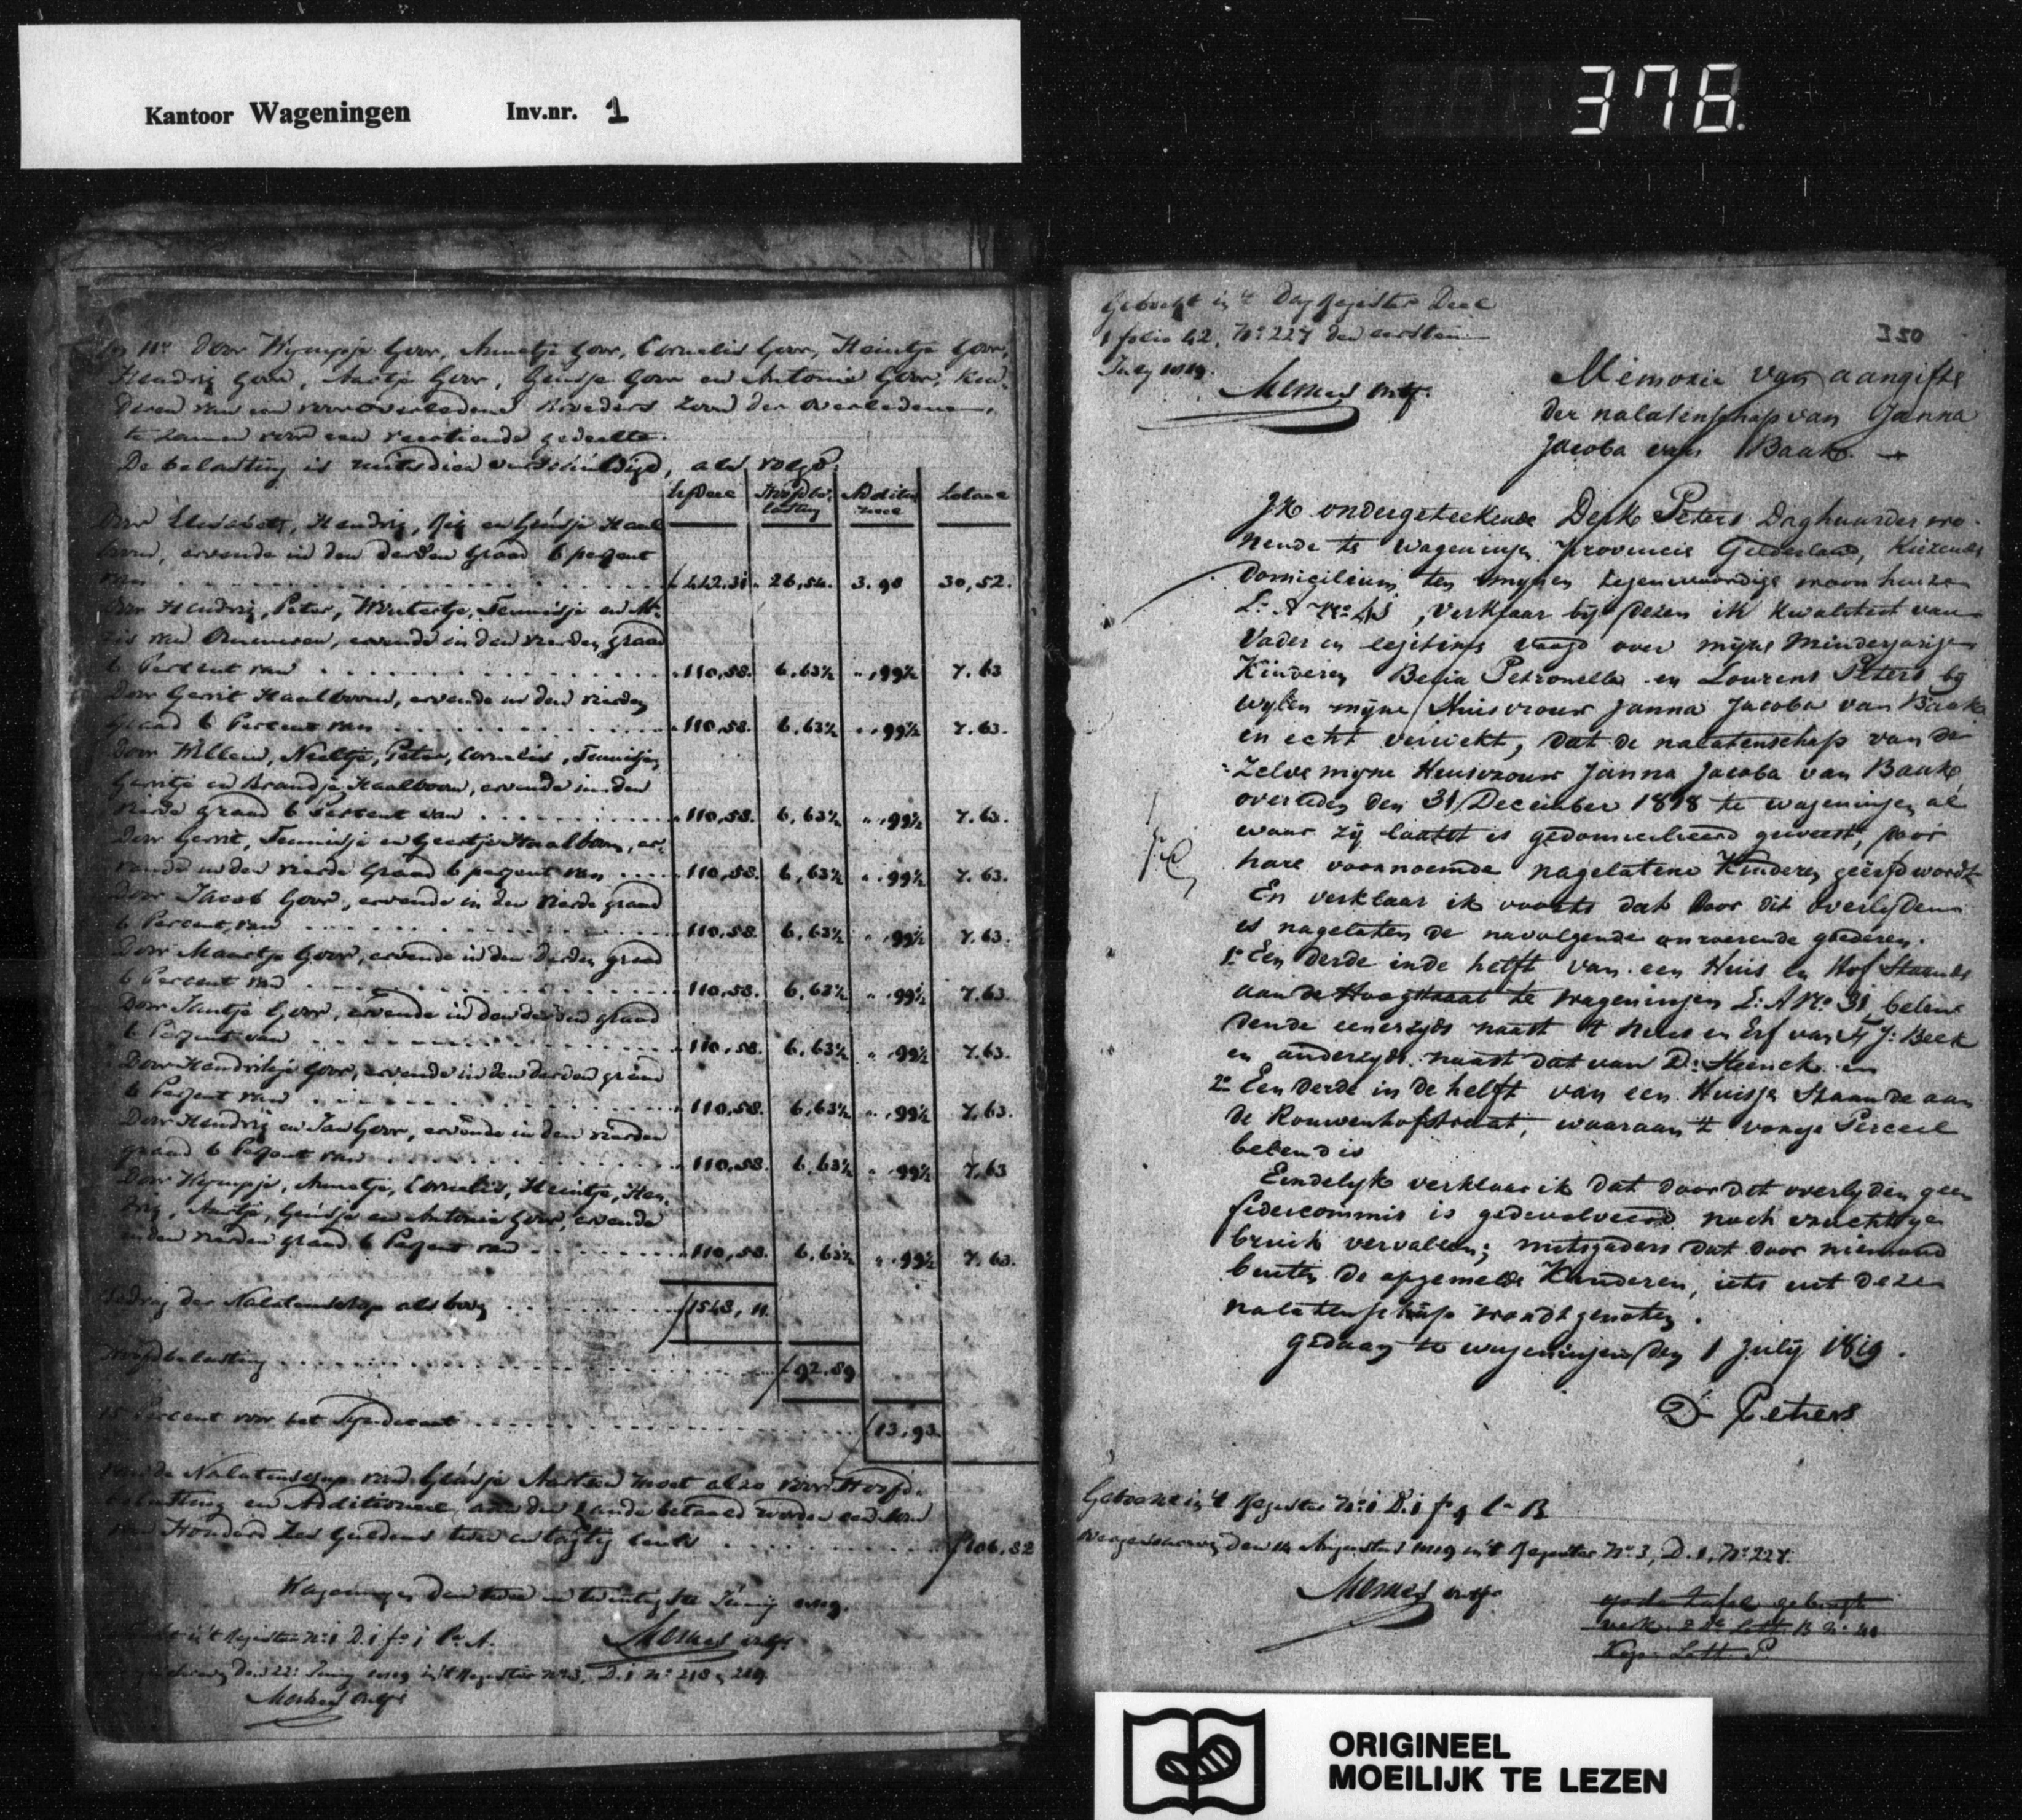 Kantoor Wageningen Inv.nr. 1
378.
Door Wympje Goor, Annetje Goor, Cornelis Goor, Heintje Goor,
Hendrig Goor, Aartje Goor, Geusje Goor en Antonie Goor, kin-
deren van een vooroverledene broeders zoon der overledene,
te zamen voor een veertiende gedeelte.
De belasting is mitsdien verschuldigd, als volgt.
Erfdeel Hoofdbe- lasting Additio- neel Totaal
Door Elisabeth, Hendrig, en Geusje Haal
boom, ervende in den derden Graad 6 percent
van 442.31 26,54. 3.98 30,52.
Door Hendrig, Peter, Woutertje, Teunisje en
van Ommeren, ervende in den vierden graad
6 Percent van 110,58. 6,63½ ,,99½ 7.63
Door Gerrit Haalboom, ervende in den vierden
Graad 6 Percent van 110,58. 6,63½ ,,99½ 7.63.
Door Willem, Neeltje, Peter, Cornelis, Teunisje,
Gerritje en Brandje Haalboom, ervende in den
vierde graad 6 Percent van 110,58. 6,63½ ,,99½ 7.63.
Door Gerrit, Teunisje en Geertje Haalboom, er-
vende in den vierde Graad 6 percent van 110,58. 6,63½ ,,99½ 7.63.
Door Jacob Goor, ervende in den vierde graad
6 Percent van 110,58. 6,63½ ,,99½ 7.63.
Door Maartje Goor, ervende in den derden graad
6 Percent van 110,58. 6,63½ ,,99½ 7.63.
Door Jantje Goor, ervende in den derden graad
6 Percent van 110,58. 6,63½ ,,99½ 7.63.
Door Hendrikje Goor, ervende in den derden graad
6 Percent van 110,58. 6,63½ ,,99½ 7.63.
Door Hendrig en Jan Goor, ervende in den vierden
graad 6 Percent van 110,58. 6,63½ ,,99½ 7,63
Door Wympje, Annetje, Cornelis, Heintje, Hen-
drig, Aartje, Geusje en Antonie Goor, ervende
in den vierden graad 6 Percent van 110,58. 6,63½ ,,99½ 7.63.
Bedrag der Nalatenschap als boven 1548,11.
Hoofdbelasting 92.89
15 Percent voor het Syndicaat 13,93.
Van de Nalatenschap van Geusje Aartsen moet alzo voor Hoofd-
belasting en Additioneel aan den Lande betaald worden een som
van Honderd Zes Guldens twee en tagtig cents f 106,82
Wageningen den twee en twintigste Junij 1819.
in 't Register No. 1 D. 1 fo. 1 La. A.
den 22 Junij 1819 in 't Register No. 3, D. 1 No. 218
Geboekt in 't Dag Register Deel
1 folio 42, No. 227 den eersten
July 1819.
220
Memorie van aangifte
der nalatenschap van Janna
Jacoba van Baak.
Ik ondergeteekende Derk Peters Daghuurder wo-
nende te Wageningen Provincie Gelderland, kiezende
Domicilium ten mynen tegenwoordige woonhuize
L: A No. 45, verklaar by dezen ik kwaliteit van
Vader en legitime voogd over myne Minderjarige
Kinderen Petronella en Lourens Peters by
wylen myne Huisvrouw Janna Jacoba van Baak
in echt verwekt, dat de nalatenschap van de
zelve myne Huisvrouw Janna Jacoba van Baak
overleden den 31 December 1818 te wageningen al
waar zy laatst is gedomicilieerd geweest, door
hare voornoemde nagelatene Kinderen geërfd wordt
En verklaar ik voorts dat door dit overlyden
is nagelaten de navolgende onroerende goederen.
1o Een derde in de helft van een Huis en Hof Staande
aan de Hoogstraat te wageningen L: A No. 31, belen
dende eenerzyds naast 't Huis en Erf van J: Beek
en anderzyds naast dat van D: Steenck en
2o Een derde in de helft van een Huisje Staande aan
de Rouwenhofstraat, waaraan 't vorige Perceel
belend is
Eindelyk verklaar ik dat door dit overlyden geen
fideicommis is gedevolveerd noch vruchtge
bruik vervallen; mitsgaders dat door niemand
buiten de opgemelde Kinderen, iets uit deze
nalatenschap wordt genoten.
gedaan te wageningen den 1 July 1819.
D Peters
Geboekt in 't Register No. 1 D. 1 fo. 9 La B
den 14 Augustus 1819 in 't Register No. 3, D. 1, No. 227.
ORIGINEEL
MOEILIJK TE LEZEN